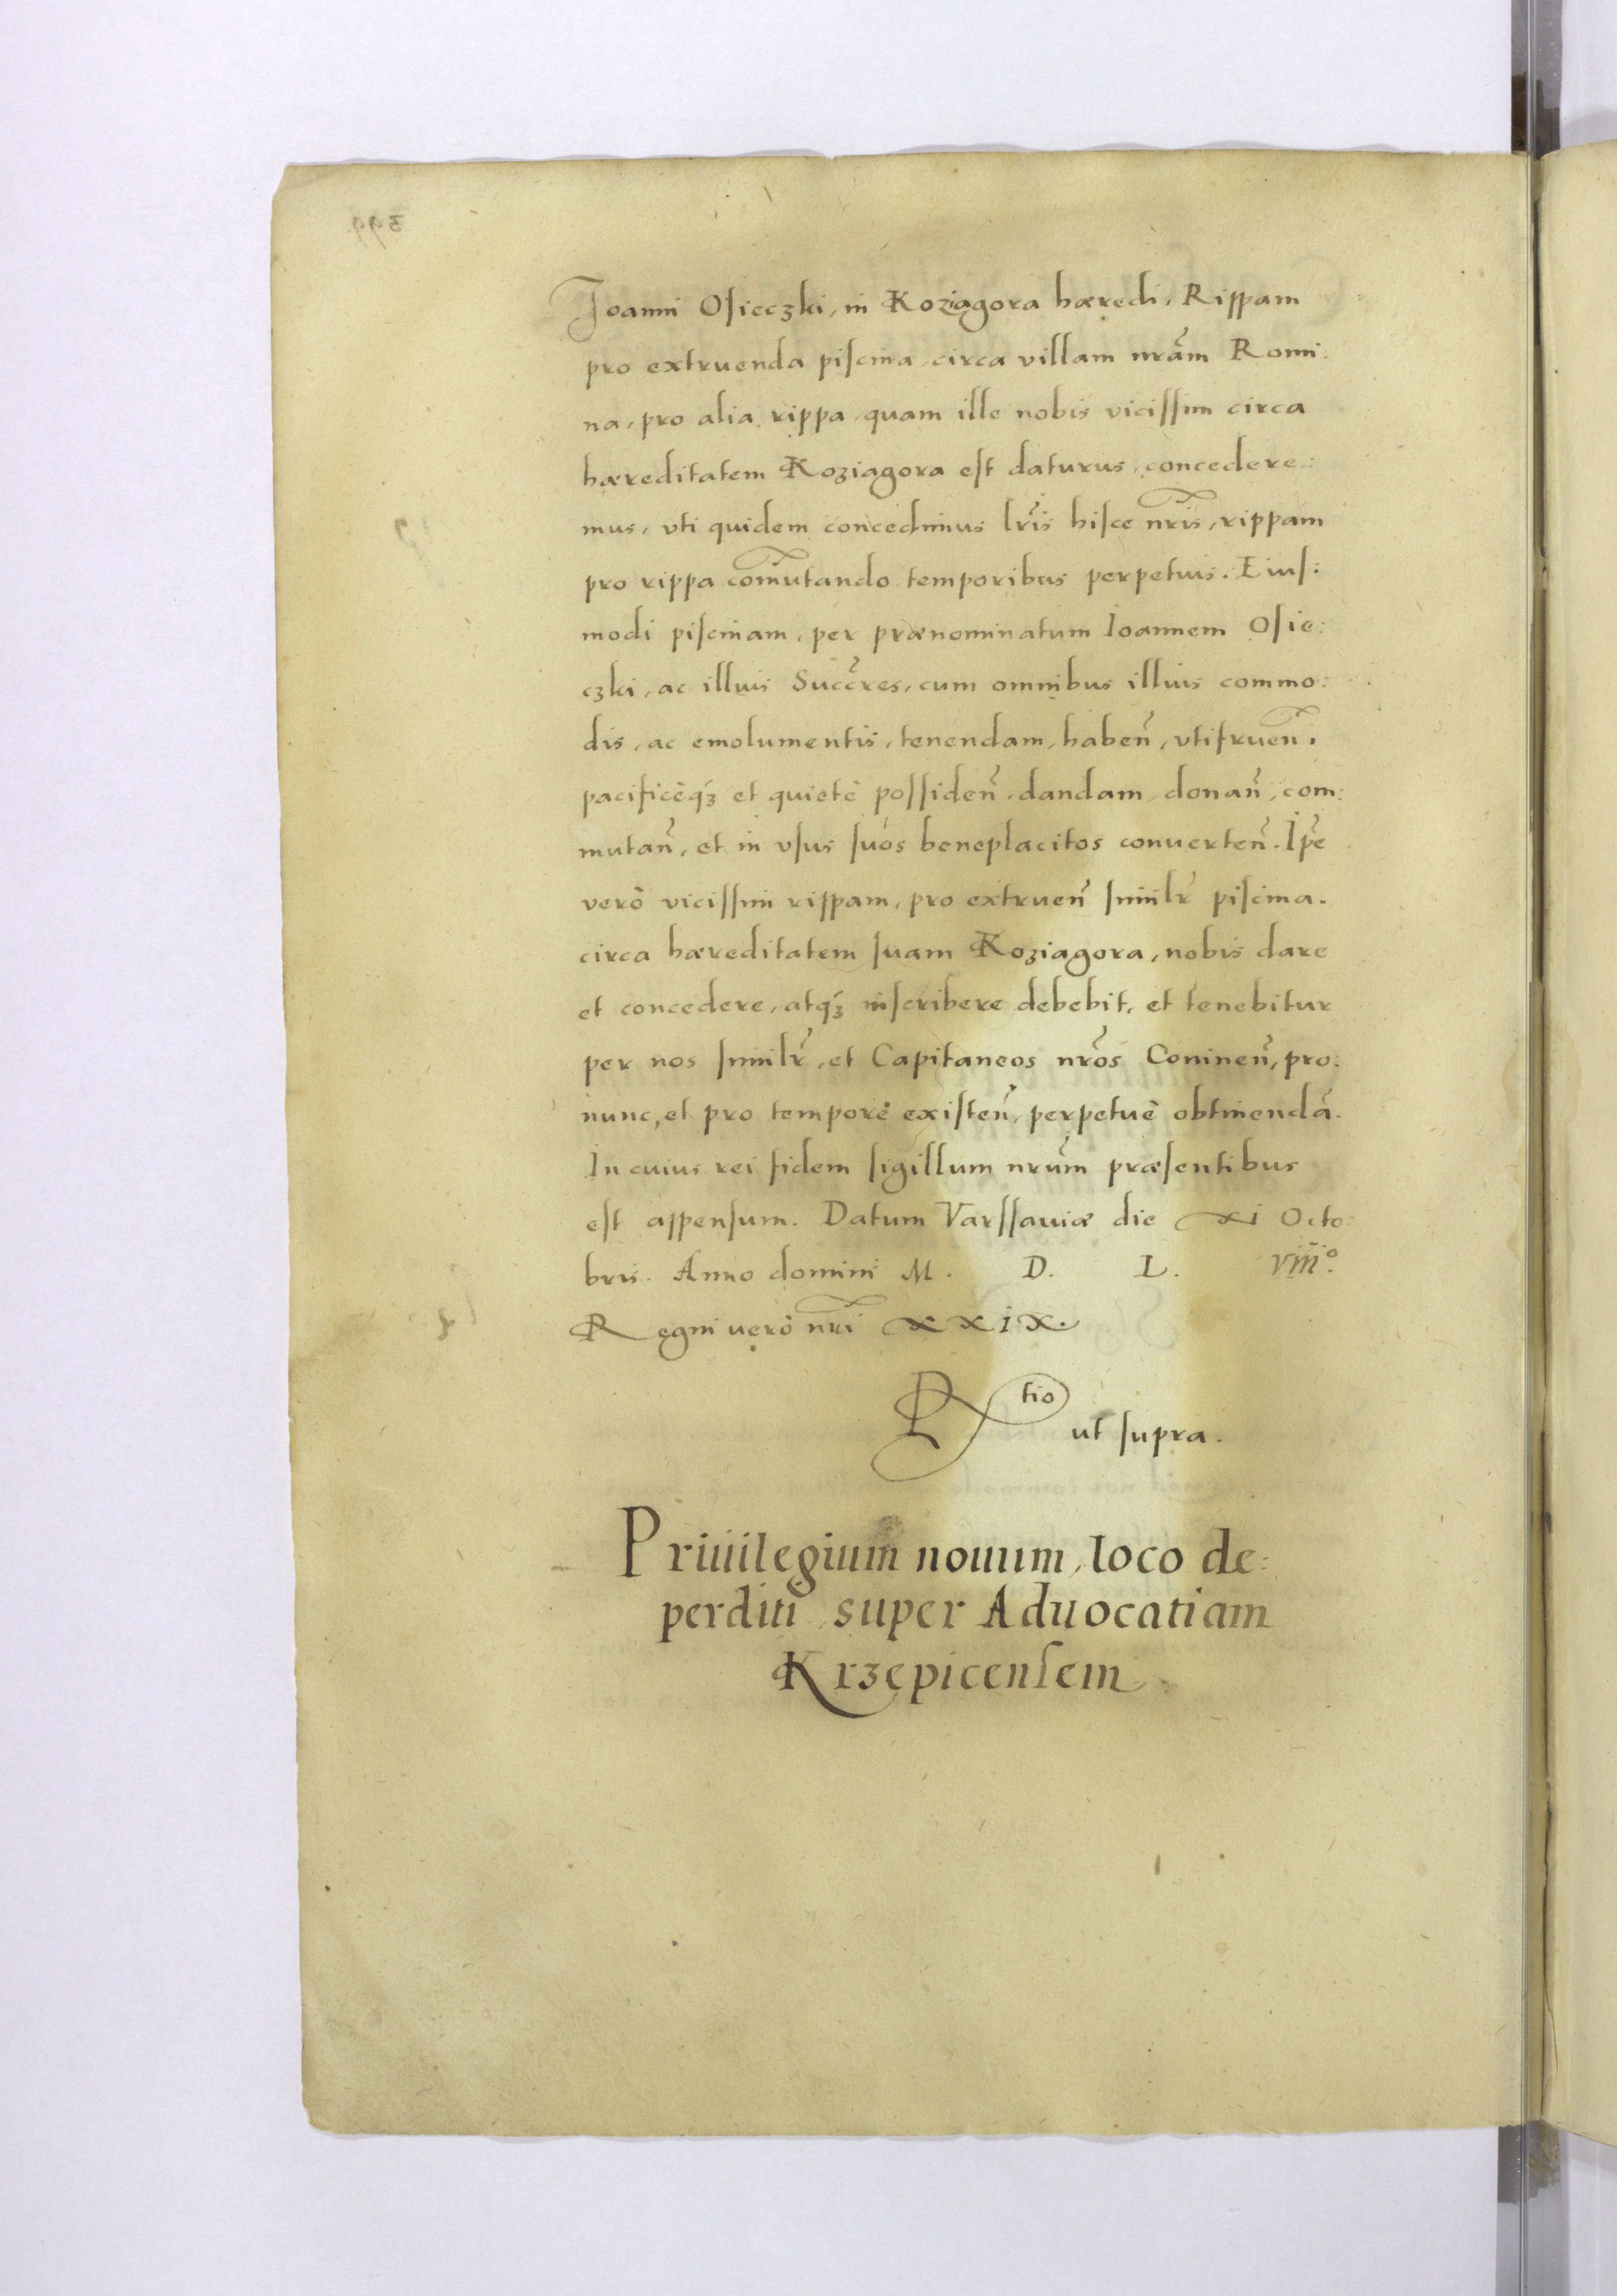 Joanni Osieczki, in Koziagora hæredi, Rippam
pro extruenda piscina circa villam nrãm Romi:
na, pro alia rippa quam ille nobis vicissim circa
hæreditatem Koziagora est daturus, concedere:
mus, vti quidem concedimus lrĩs hisce nrĩs, rippam
pro rippa com̃utando temporibus perpetuis. Eius:
modi piscinam, per prænominatum Ioannem Osie:
czki, ac illius Succ̃res, cum omnibus illius commo:
dis, ac emolumentis, tenendam, habeñ, vtifrueñ.
pacificèq́ꝫ et quietè possideñ. dandam, donañ, com:
mutañ, et in vsus suos beneplacitos conuerteñ. Ip̃e
verò vicissim rippam, pro extrueñ similr̃ piscina.
circa hæreditatem suam Koziagora, nobis dare
et concedere, atq́ꝫ inscribere debebit, et tenebitur
per nos similr̃, et Capitaneos nrõs Conineñ, pro:
nunc, et pro tempore existeñ, perpetuè obtinendã.
In cuius rei fidem sigillum nrũm præsentibus
est appensum. Datum Varssauiæ die xi Octo:
bris. Anno domini M. D. L. viii°.
Regni uerò nrĩ xxix.
Rtio ut supra.
Priuilegium nouum, loco de:
perditi super Aduocatiam
Krzepicensem.